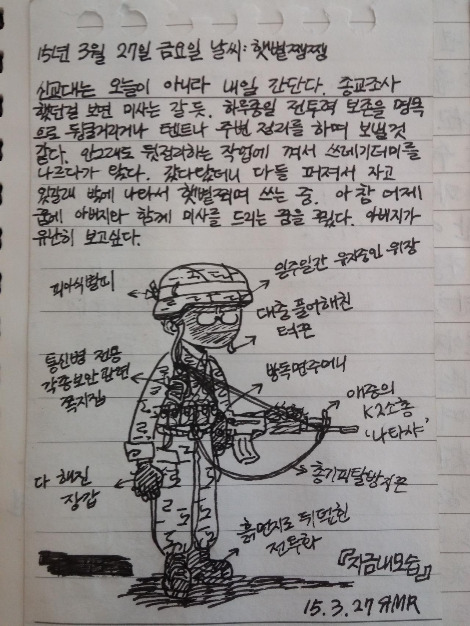 15년 3월 27일 금요일 날씨: 햇볕쨍쨍
신교대는 오늘이 아니라 내일 간단다. 종교조사
했던걸 보면 미사는 갈 듯. 하루종일 전투력 보존을 명목
으로 뒹굴거리거나 텐트나 주변 정리를 하며 보낼것
같다. 안그래도 뒷정리하는 작업에 껴서 쓰레기더미를
나르다가 왔다. 갔다왔더니 다들 퍼져서 자고
있길래 밖에 나와서 햇볕쬐며 쓰는 중. 아 참 어제
꿈에 아버지와 함께 미사를 드리는 꿈을 꿨다. 아버지가
유난히 보고싶다.
피아식별띠
일주일간 유지중인 위장
대충 풀어헤친
턱끈
통신병 전용
각종보안관련
쪽지집
방독면주머니
애증의
K2소총
'나타샤'
다 해진
장갑
총기피탈방지끈
흙먼지로 뒤덮힌
전투화
『지금내모습』
15.3.27 유MR